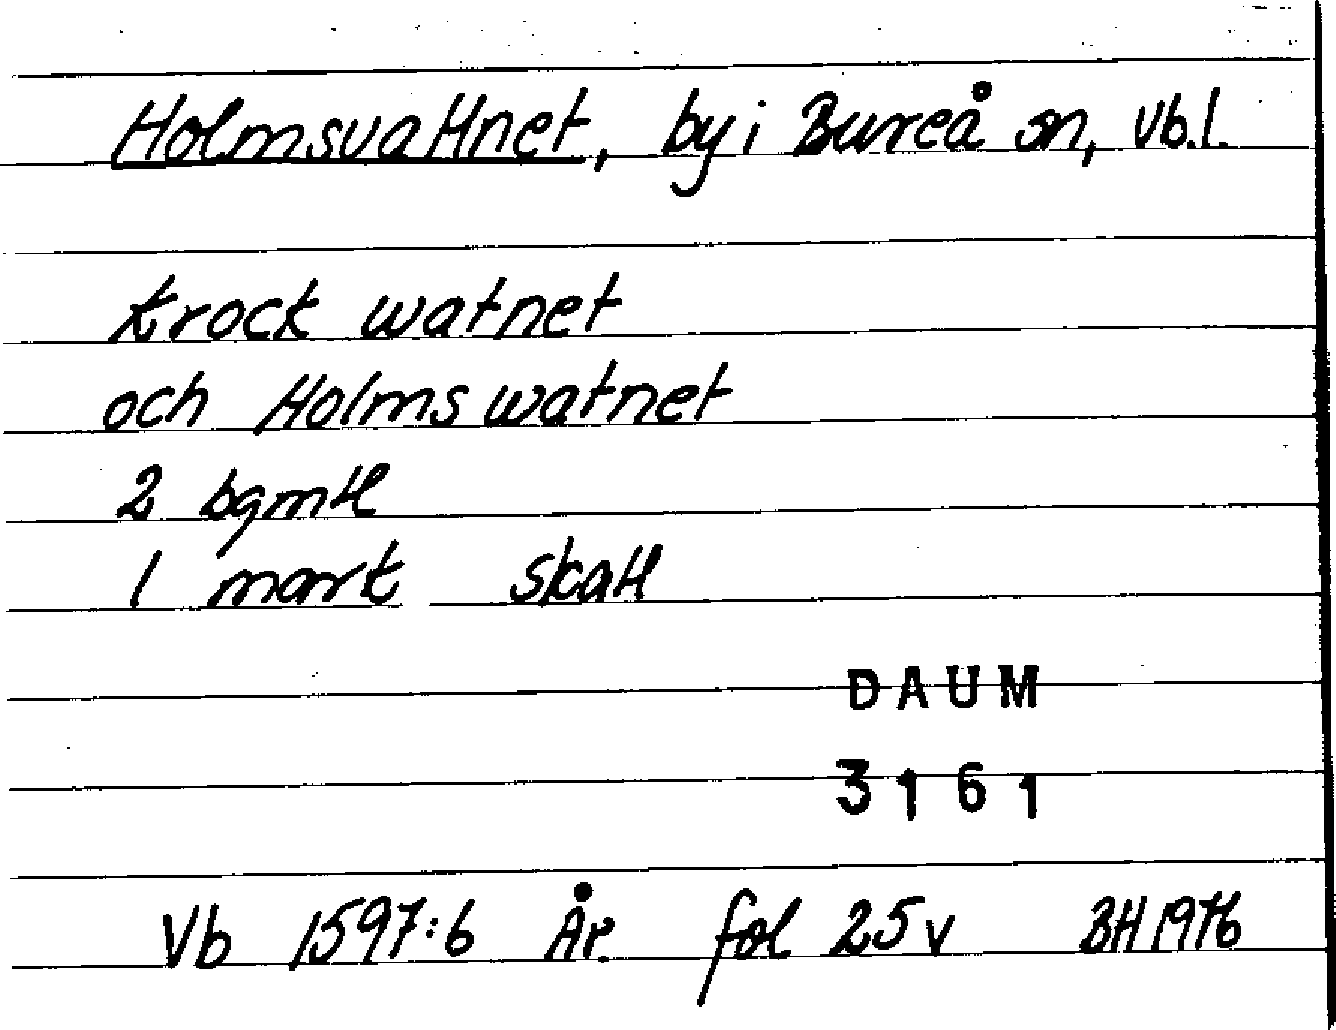 Holmsvattnet, by i Bureå sn, Vb.l.
Krock watnet
och Holms watnet
2 bgmtl
1 mark skatt
DAUM
3161
Vb 1597:6 År. fol 25v BH 1976